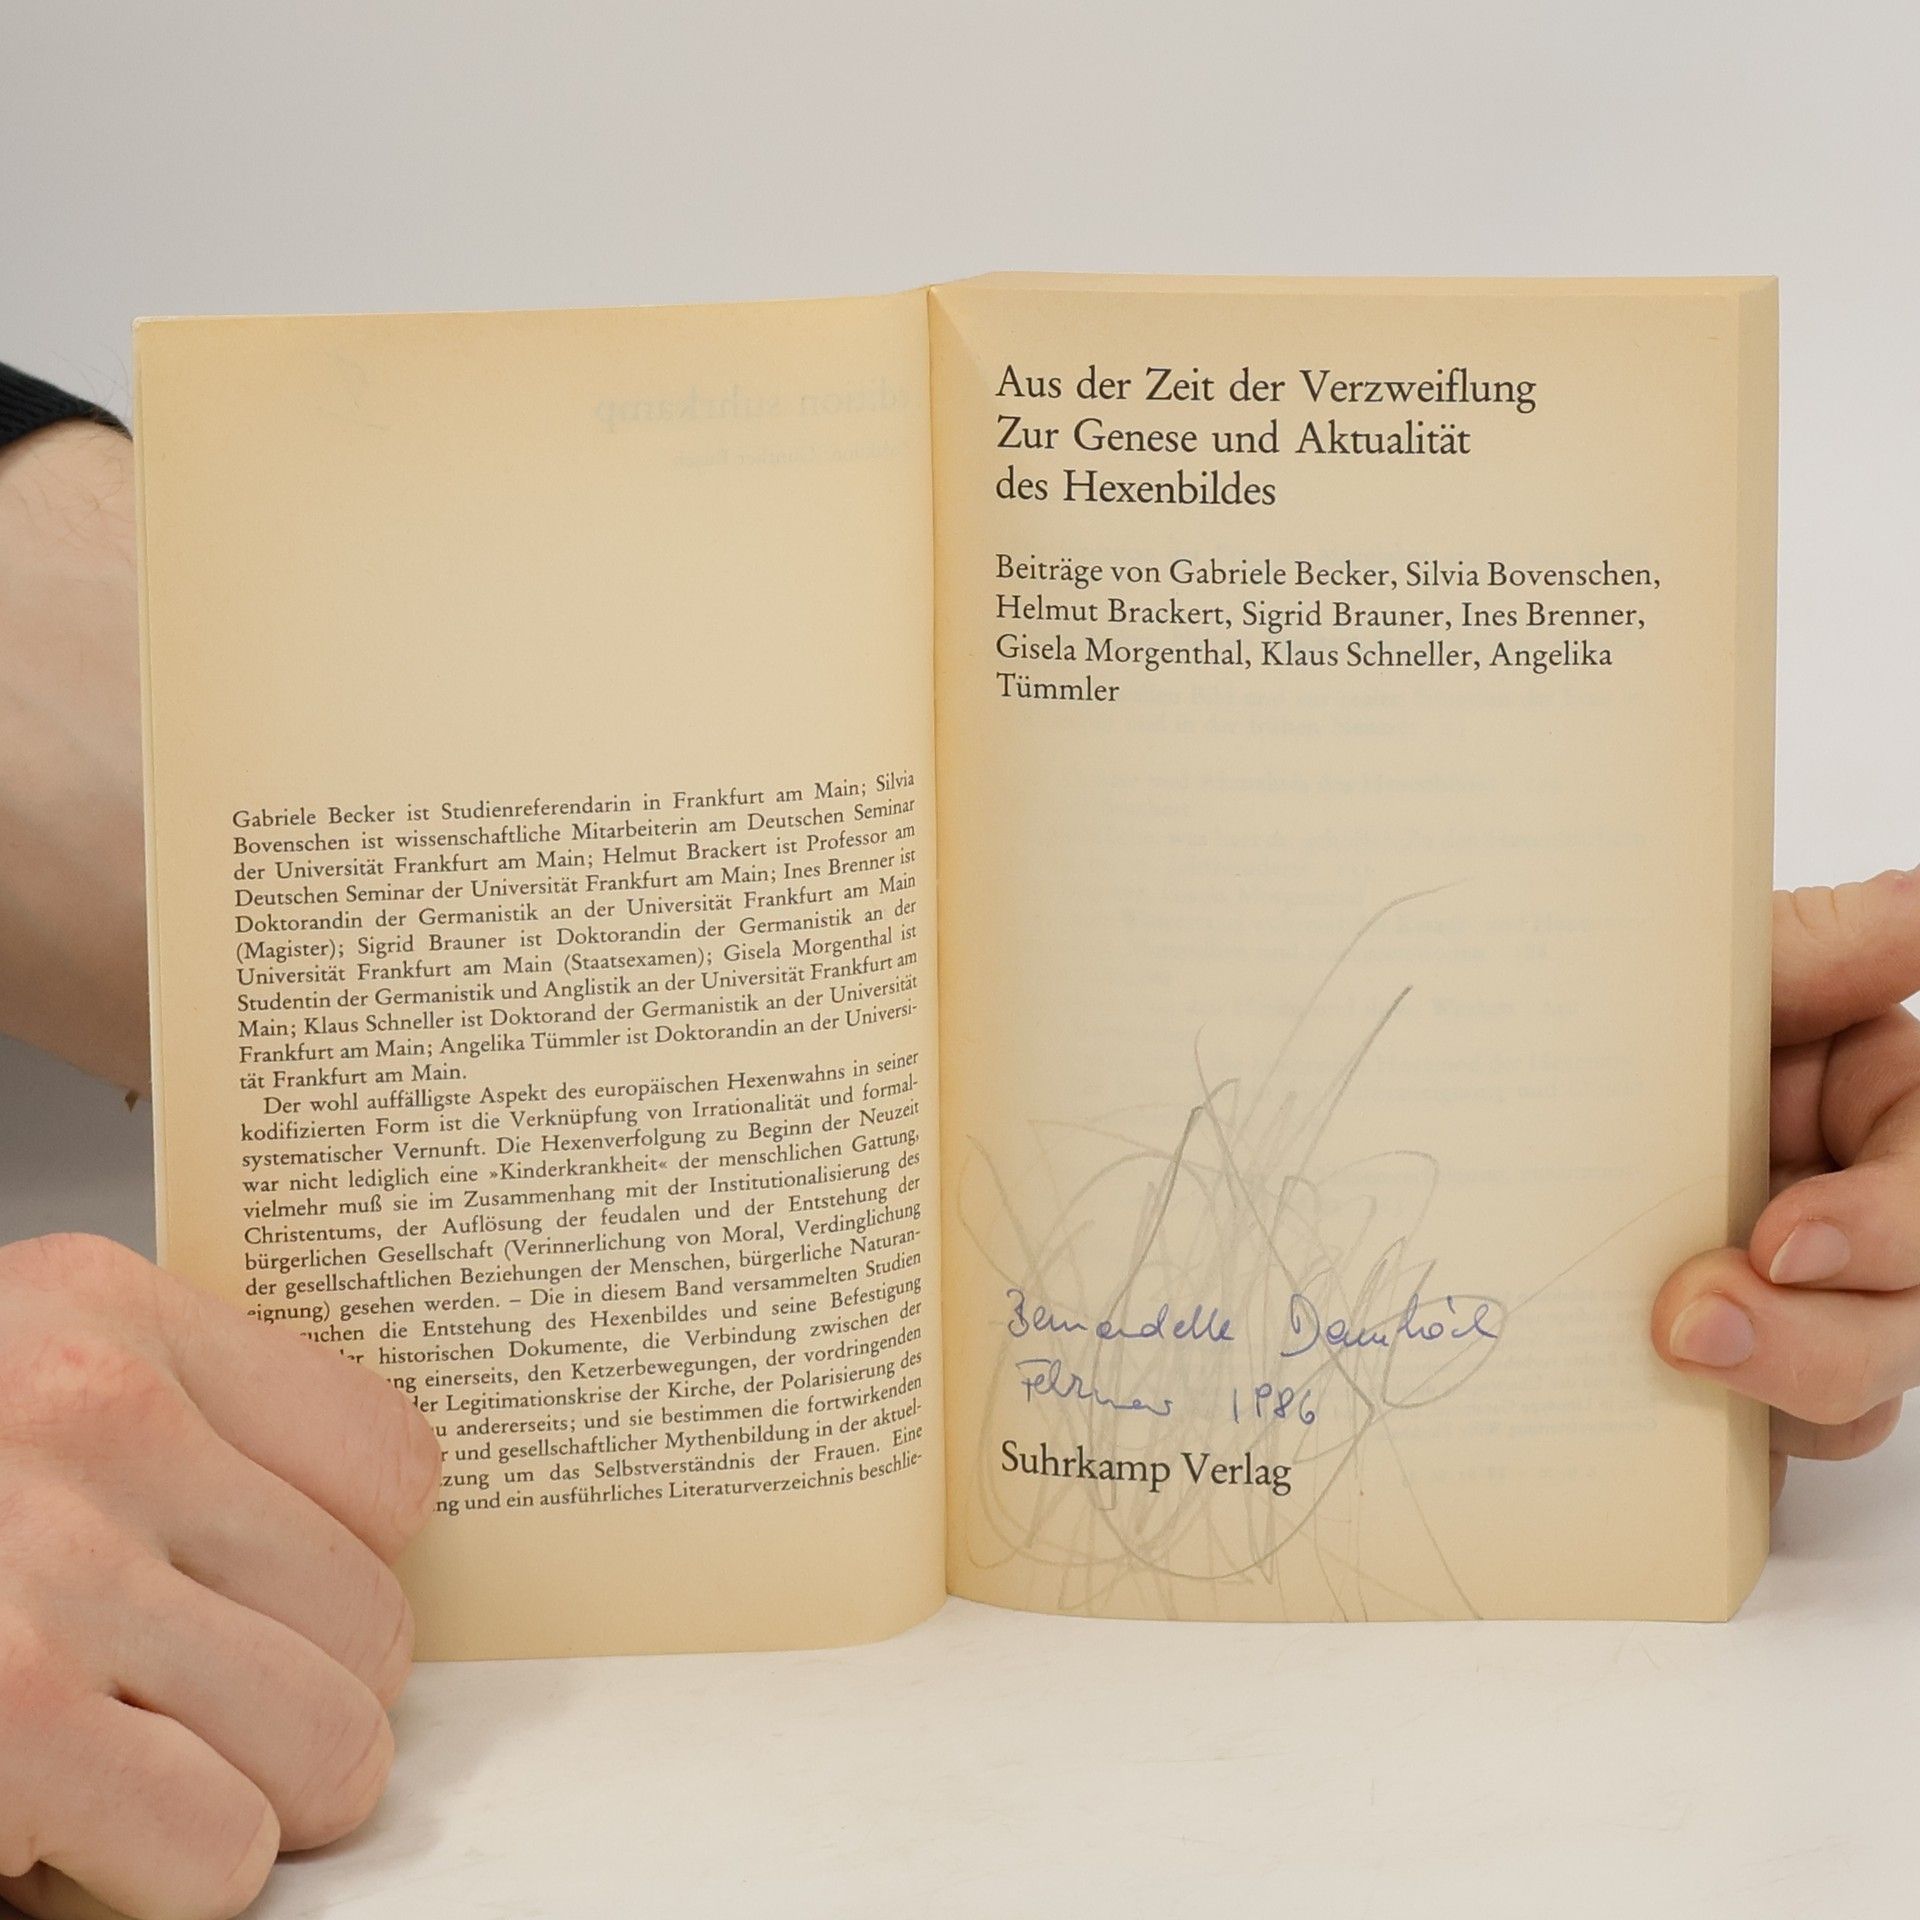 Gabriele Becker ist Studienreferendarin in Frankfurt am Main; Silvia
Bovenschen ist wissenschaftliche Mitarbeiterin am Deutschen Seminar
der Universität Frankfurt am Main; Helmut Brackert ist Professor am
Deutschen Seminar der Universität Frankfurt am Main; Ines Brenner ist
Doktorandin der Germanistik an der Universität Frankfurt am Main
(Magister); Sigrid Brauner ist Doktorandin der Germanistik an der
Universität Frankfurt am Main (Staatsexamen); Gisela Morgenthal ist
Studentin der Germanistik und Anglistik an der Universität Frankfurt am
Main; Klaus Schneller ist Doktorand der Germanistik an der Universität
Frankfurt am Main; Angelika Tümmler ist Doktorandin an der Universi-
tät Frankfurt am Main.
Der wohl auffälligste Aspekt des europäischen Hexenwahns in seiner
kodifizierten Form ist die Verknüpfung von Irrationalität und formal-
systematischer Vernunft. Die Hexenverfolgung zu Beginn der Neuzeit
war nicht lediglich eine »Kinderkrankheit« der menschlichen Gattung,
vielmehr muß sie im Zusammenhang mit der Institutionalisierung des
Christentums, der Auflösung der feudalen und der Entstehung der
bürgerlichen Gesellschaft (Verinnerlichung von Moral, Verdinglichung
der gesellschaftlichen Beziehungen der Menschen, bürgerliche Naturan-
eignung) gesehen werden. – Die in diesem Band versammelten Studien
die Entstehung des Hexenbildes und seine Befestigung
historischen Dokumente, die Verbindung zwischen der
einerseits, den Ketzerbewegungen, der vordringenden
der Legitimationskrise der Kirche, der Polarisierung des
andererseits; und sie bestimmen die fortwirkenden
und gesellschaftlicher Mythenbildung in der aktuel-
um das Selbstverständnis der Frauen. Eine
und ein ausführliches Literaturverzeichnis beschlie-
Aus der Zeit der Verzweiflung
Zur Genese und Aktualität
des Hexenbildes
Beiträge von Gabriele Becker, Silvia Bovenschen,
Helmut Brackert, Sigrid Brauner, Ines Brenner,
Gisela Morgenthal, Klaus Schneller, Angelika
Tümmler
Bernadette
Februar 1986
Suhrkamp Verlag